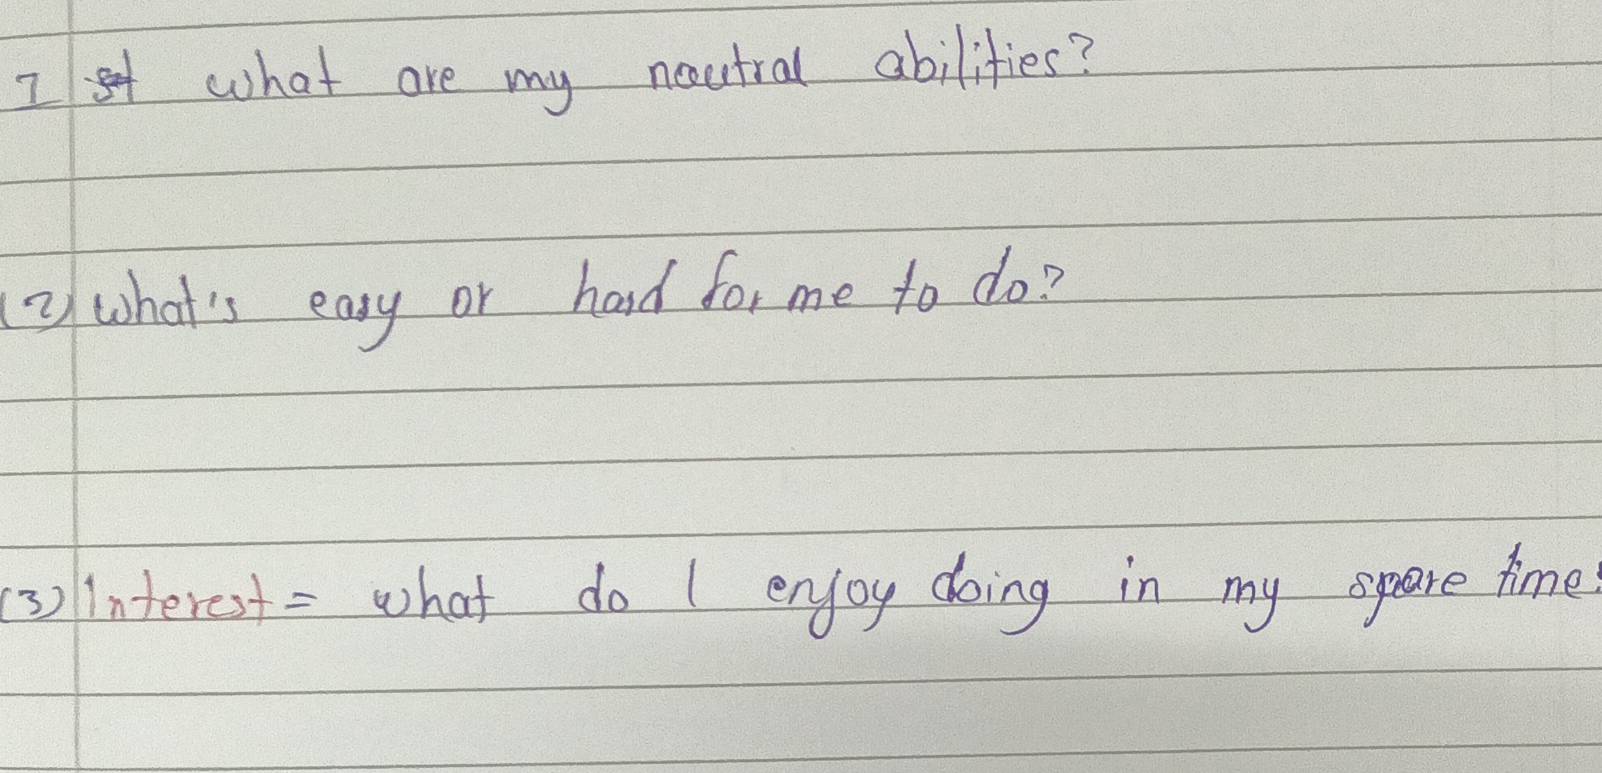 1 st what are my nautral abilities?
(2) what's easy or hard for me to do?
(3) Interest = what do I enjoy doing in my spare time?